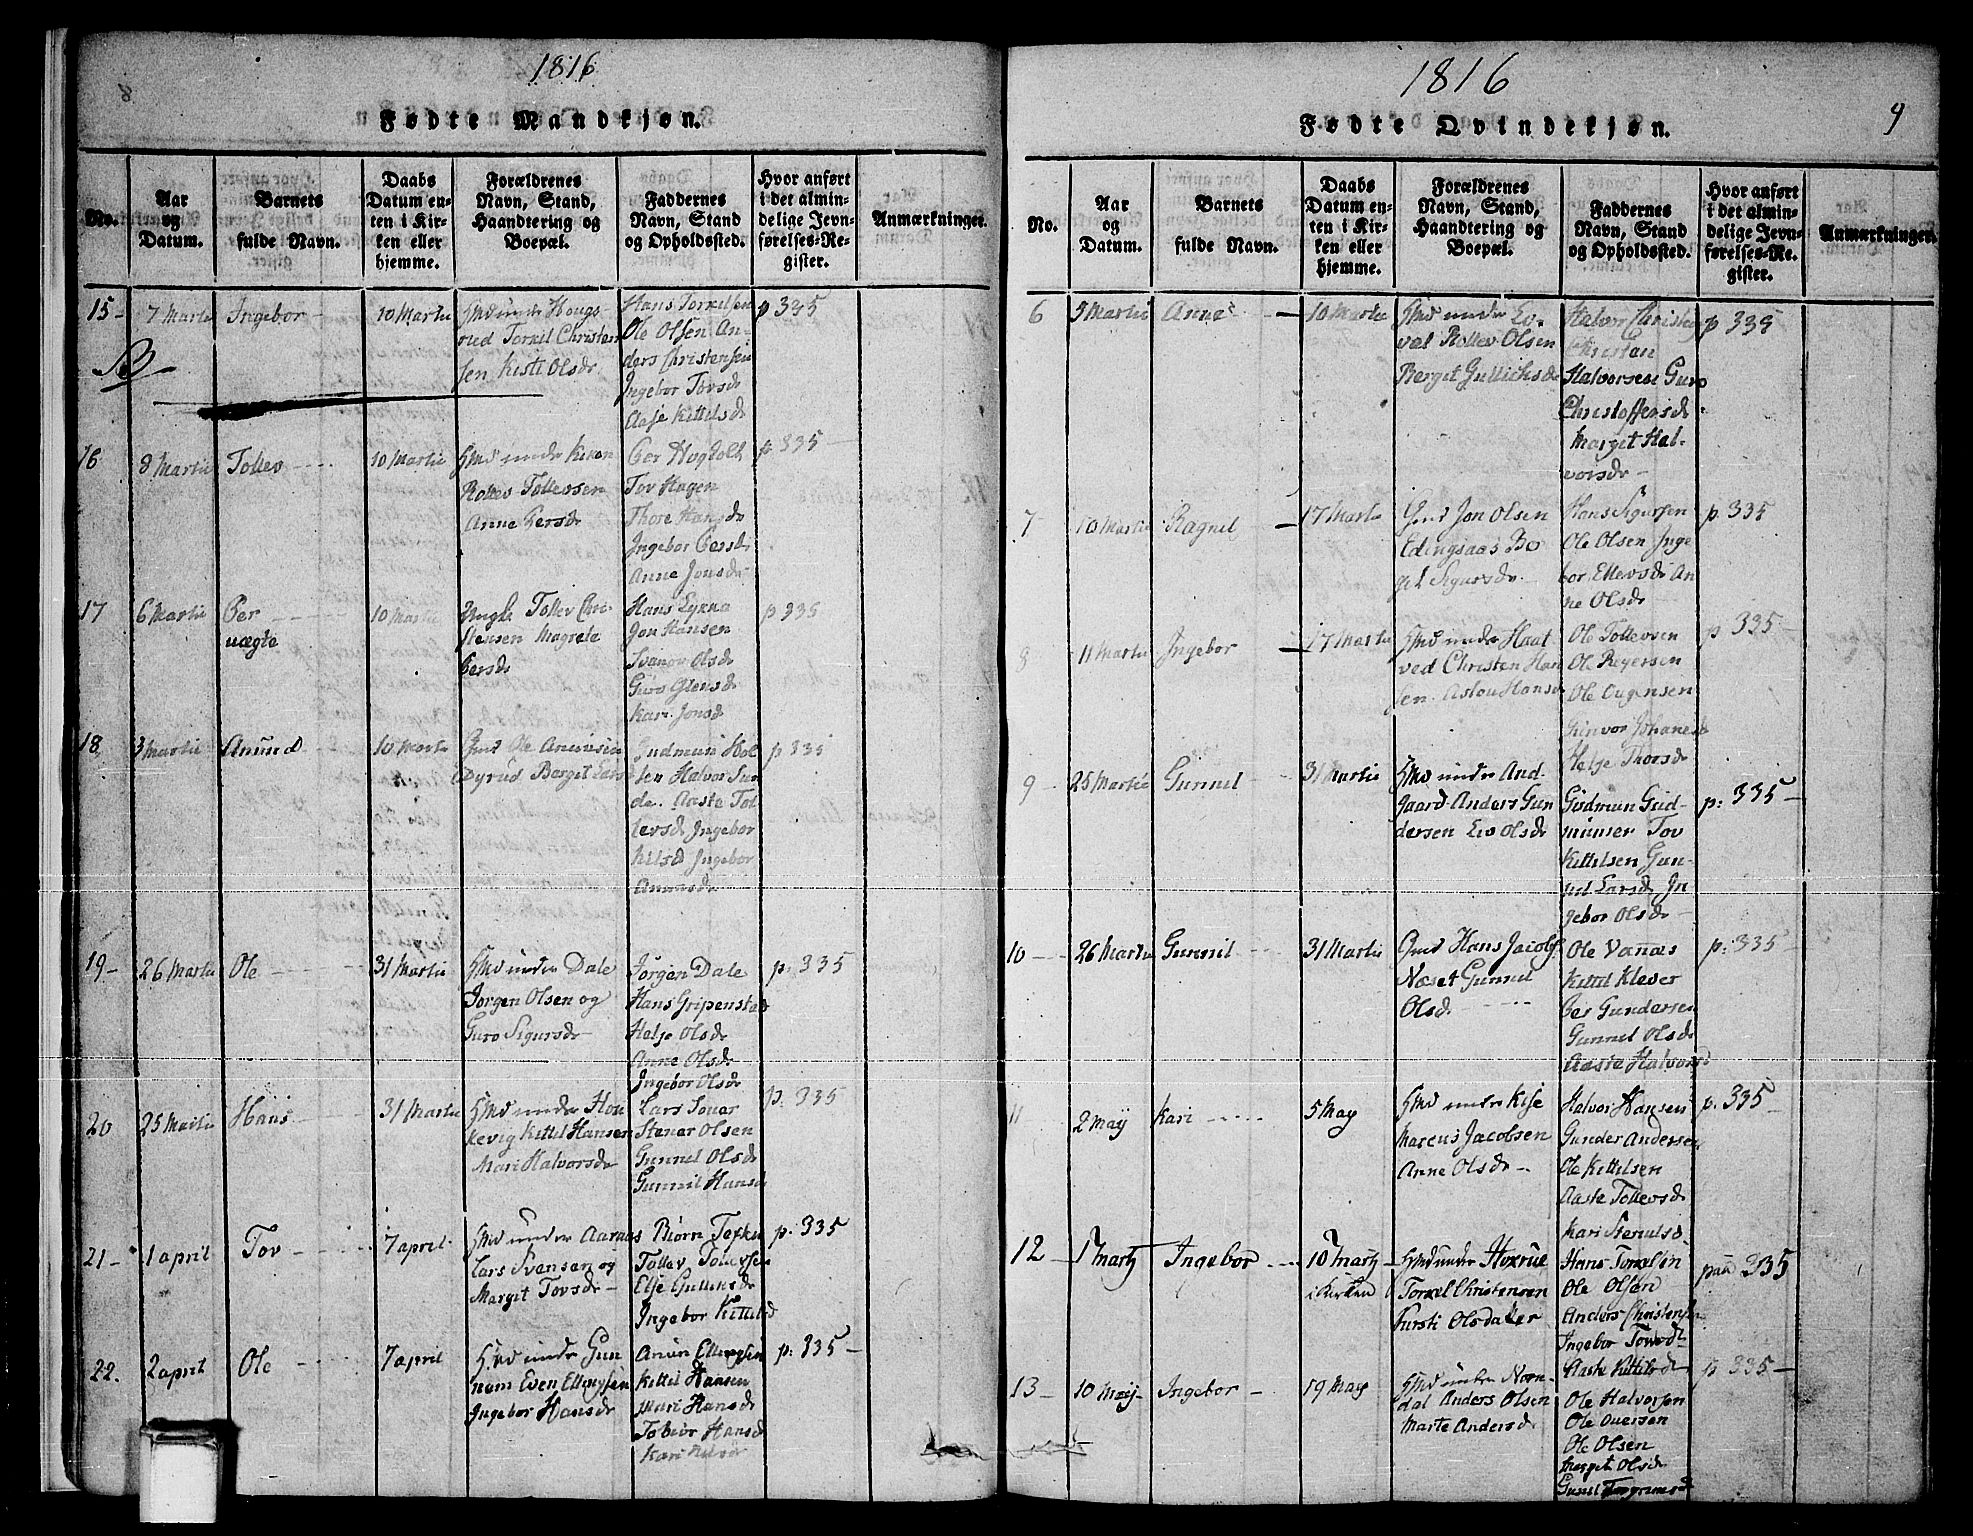 1816
Fødte Mandkjøn.
No.
Aar
og
Datum.
Barnets
fulde Navn.
Daabs
Datum en-
ten i Kir-
ken eller
hjemme.
Forældrenes
Navn, Stand,
Haandtering og
Boepæl.
Faddernes
Navn, Stand
og Opholdssted.
Hvor anført
i det almin-
delige Jevn-
førelses-Re-
gister.
Anmærkninger.
15 -
7 Martii
Ingebor
10 Martii
Hmd under Hougs-
rud Torkil Christen
sen Kisti Olsdr
Hans Torkilsen
Ole Olsen An-
ders Christensen
Ingebor Tovsdr
Aase Kittilsdr
p 335
16
8 Martii
Tollev
10 Martii
Hmd under
Rollev Tollevsen
Anne Persdr
Per
Tov Hagen
Thore Hansdr
Ingebor Persdr
Anne Jonsdr
p 335
17
6 Martii
Per
uægte
10 Martii
Ungk. Tollev Chri-
stensen Magrete
Persdr
Hans
Jon Hansen
Svanou Olsdr
Guro
Kari Jonsd
p 335
18
3 Martii
Anund
10 Martii
Gmd Ole
Dyrud Berget Larsd
Gudmun Hol
sen Halvor Gun
de. Aaste Tol
levsdr Ingebor
Ingebor
p 335
19 -
26 Martii
Ole
31 Martii
Hmd under Dale
Jorgen Olsen og
Guro Sigursdr
Jorgen Dale
Hans Gripenstad
Helje Olsdr
Anne Olsdr
Ingebor Olsdr
p. 335
20
25 Martii
Hans
31 Martii
Hmd under Hou
kevig Kittil Hansen
Mari Halvorsdr
Lars
Stener Olsen
Gunnil Olsdr
Gunnil Hansd
p. 335
21 -
1 april
Tov
7 april
Hmd under Aarnes
Lars Svensen og
Margit Tovsdr
Biørn
Tollev Tollevsen
Else
Ingebor Kittilsd
p. 335
22.
2 april
Ole
7 april
Hmd under Gun
nem Even Ellingsen
Ingebor Hansdr
Anun Ellingsen
Kittil Hansen
Mari Hansd
Tobior Hansd
Kari
p: 335 -
1816
9
Fødte Qvindekjøn.
No.
Aar
og
Datum.
Barnets
fulde Navn.
Daabs
Datum en-
ten i Kir-
ken eller
hjemme.
Forældrenes
Navn, Stand,
Haandtering og
Boepæl.
Faddernes
Navn, Stand
og Opholdssted.
Hvor anført
i det almin-
delige Jevn-
førelses-Re-
gister.
Anmærkninger.
6
5 Martii
Anne
10 Martii
Hmd under
Rollev Olsen
Berget Gullichsdr
Halvor Christen
Christen
Halvorsen Guro
Christoffersdr
Marget Hal-
vorsdr
p 335
7
10 Martii
Ragnil
17 Martii
Gmd Jon Olsen
Edingsaas Bo
gel Sigursdr
Hans Sigursen
Ole Olsen Inge
bor Ellevsdr An
ne Olsdr
p. 335
8
11 Martii
Ingebor
17 Martii
Hmd under Haat
ved Christen Han
sen Aslou Hansd
Ole Tollevsen
Ole Regersen
Ole
Ginvor Johanesd
Helje Thorsdr
p 335
9
25 Martii
Gunnil
31 Martii
Hmd under And
gaard Anders Gun
dersen Eva Olsdr
Gudmun Gud-
munsen Tov
Kittilsen Gun-
nil Larsdr In
gebor Olsdr
p: 335 -
10
26 Martii
Gunnil
31 Martii
Gmd Hans Jacobs.
Næset Gunnil
Olsdr
Ole Vannæs
Kittil Klever
Per Gundersen
Gunnil Olsdr
Aaste Halvorsd
p: 335
11
2 Maij
Kari
5 May
Hmd under Kise
Marcus Jacobsen
Anne Olsdr
Halvor Hansen
Gunder Andersen
Ole Kittilsen
Aaste Tollevsdr
Kari
p. 335
12
Martz
Ingebor
10 Martz
i Kirken
Hmd under
Torkel Christensen
Kirsti Olsdatter
Hans Torkelsen
Ole Olsen
Anders Christensen
Ingebor Tovsdr
Aaste Kittilsdr
335
13 -
10 Maij
Ingebor
19 May
Hmd under Norn-
dal Anders Olsen
Marte Andersdr
Ole Halvorsen
Ole
Ole Olsen
Marget Olsdr
Gunil
p 335 -